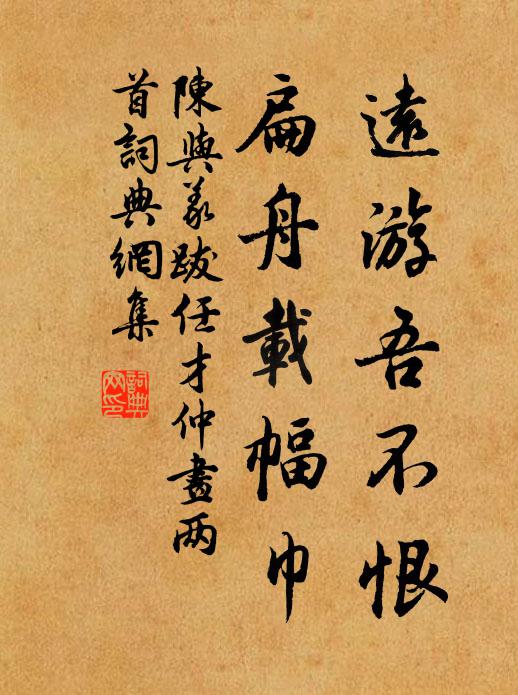 遠游吾不恨
扁舟載幅巾
陳與義跋任才仲畫两
首詞典網集
詞典
网印